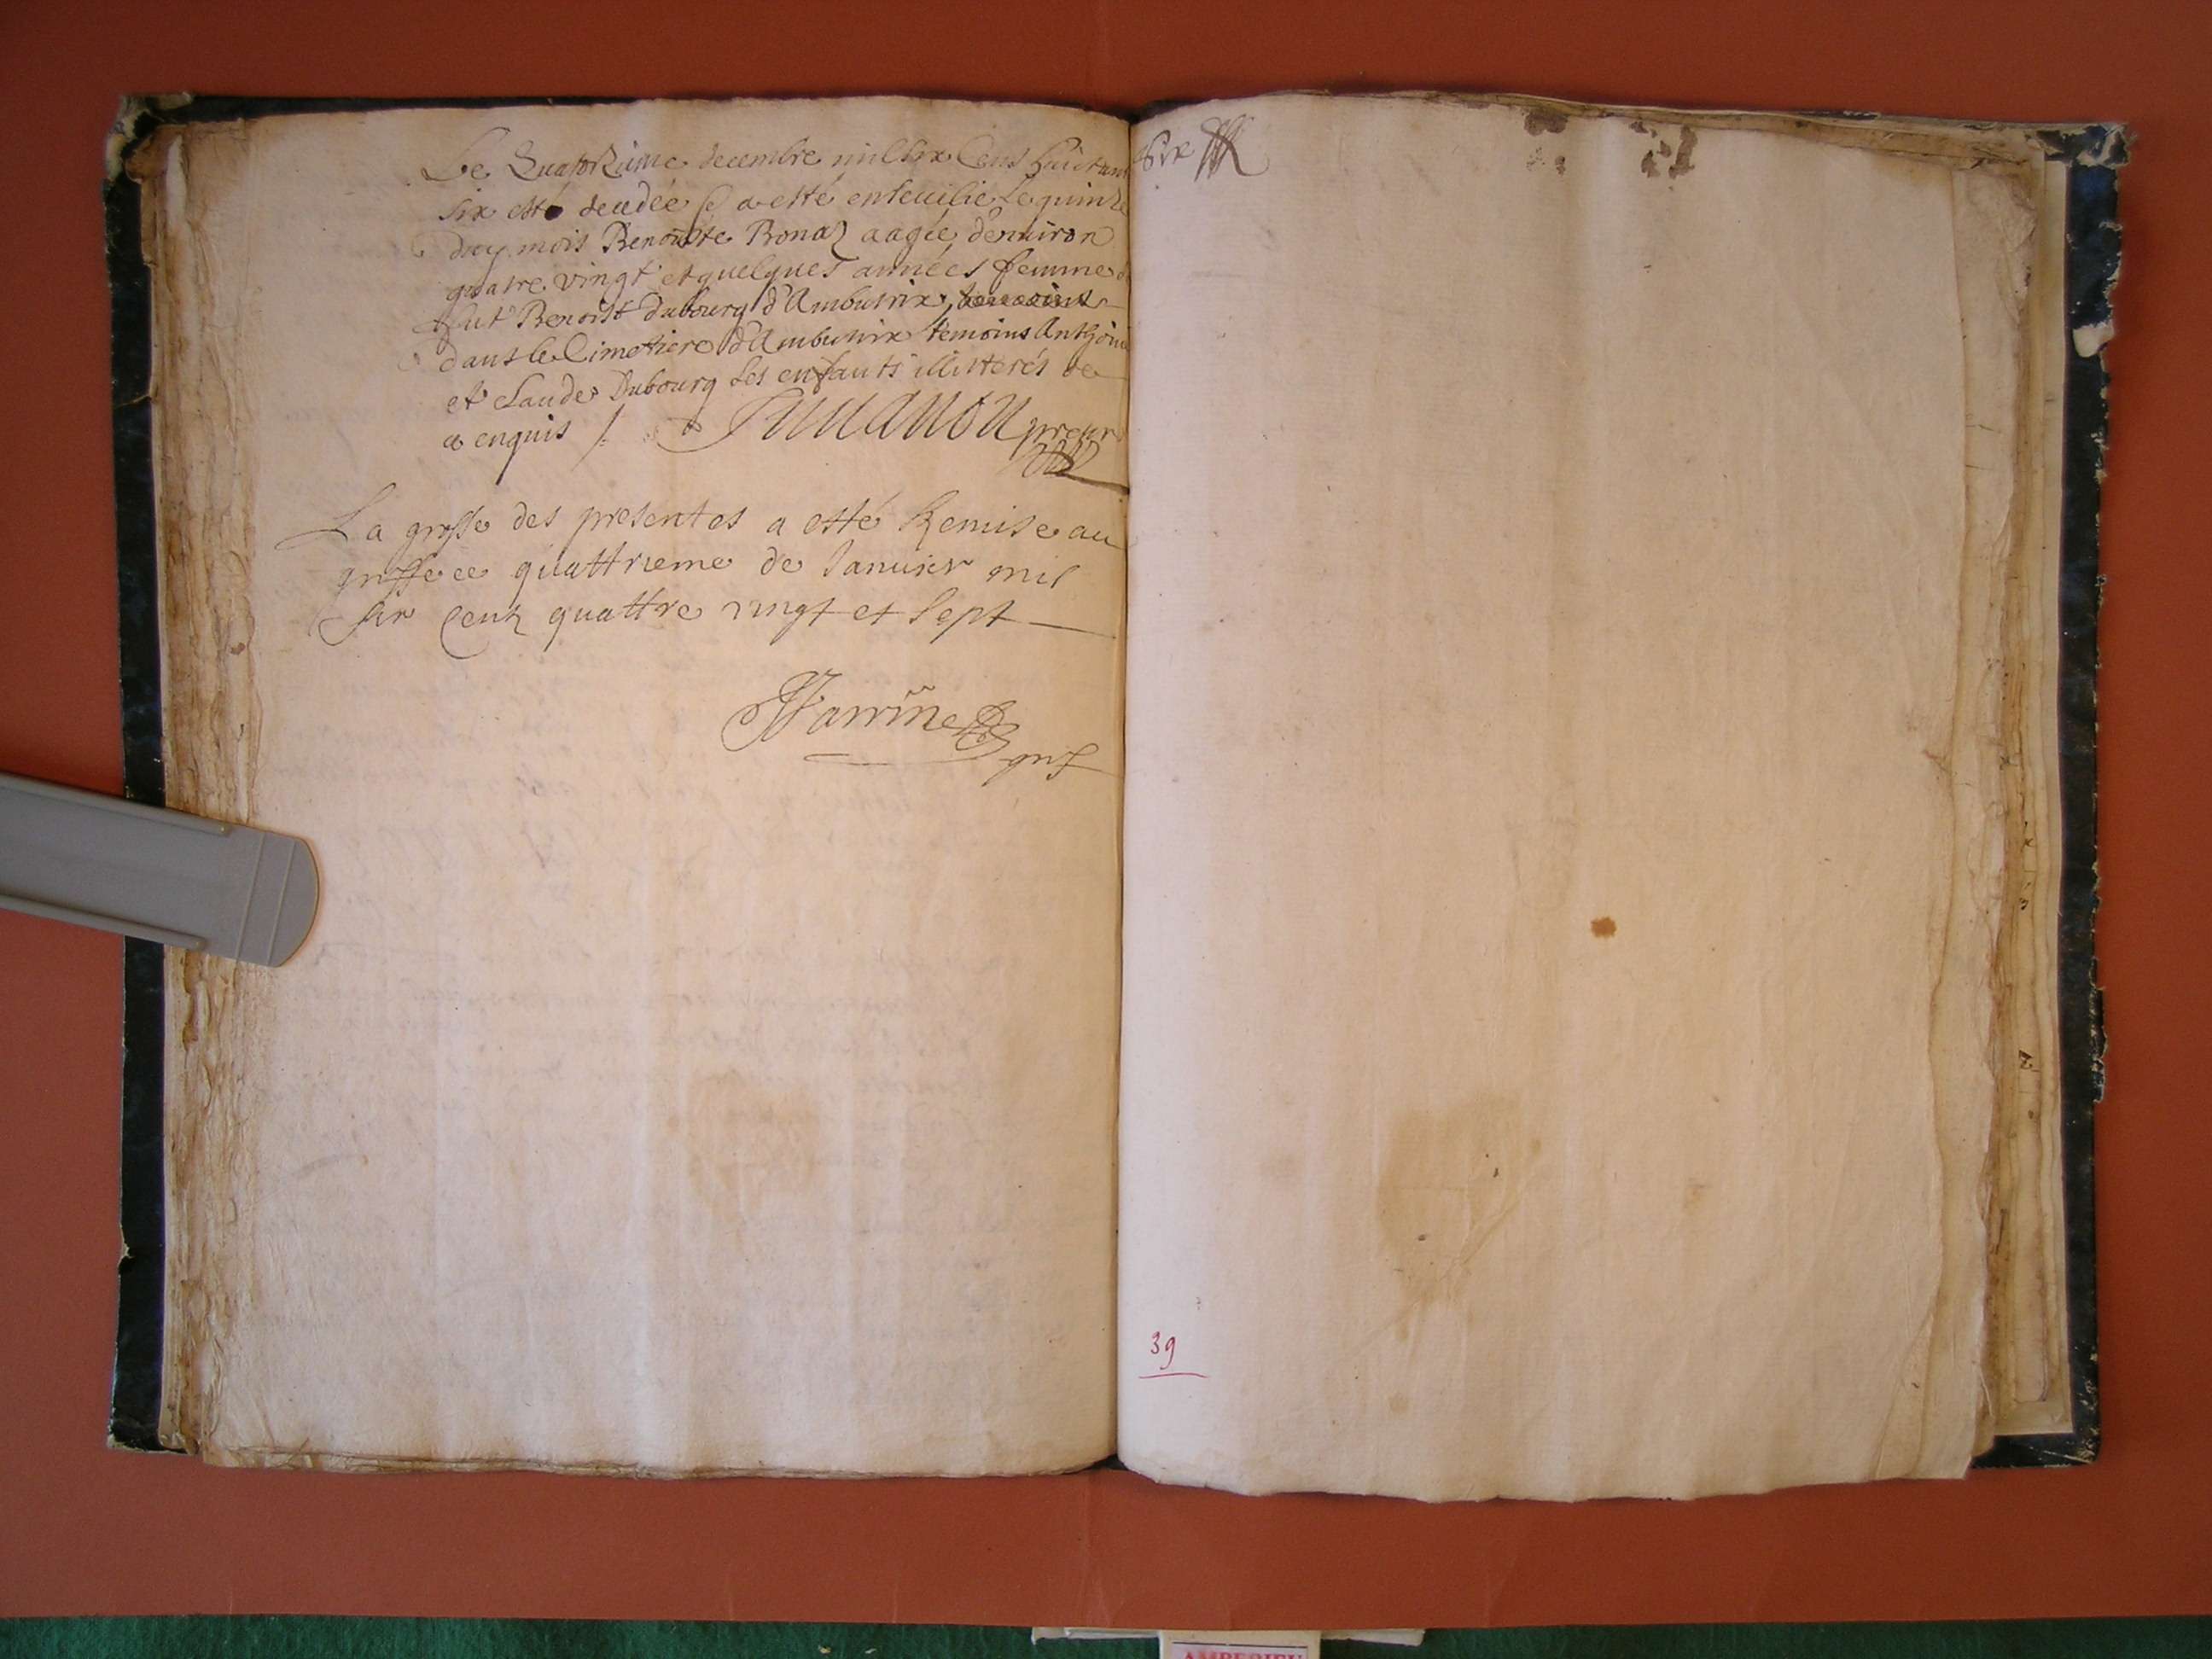 Le Quatorzieme decembre mil six Cens huictante
six est decedée & a esté ensevilie le quinze
du mois Benoiste Bonaz aagée d'enuiron
quatre vingt et quelques années femme
fut Benoist Dubourg d'Ambutrix
dans le Cimetiere d'Ambutrix temoins Anthoine
et Claude Dubourg ses enfants illitterés de
a enquis
La grosse des presentes a esté Remise au
griffe ce quattrieme de Januier mil
six Centz quattre vingt et sept
39